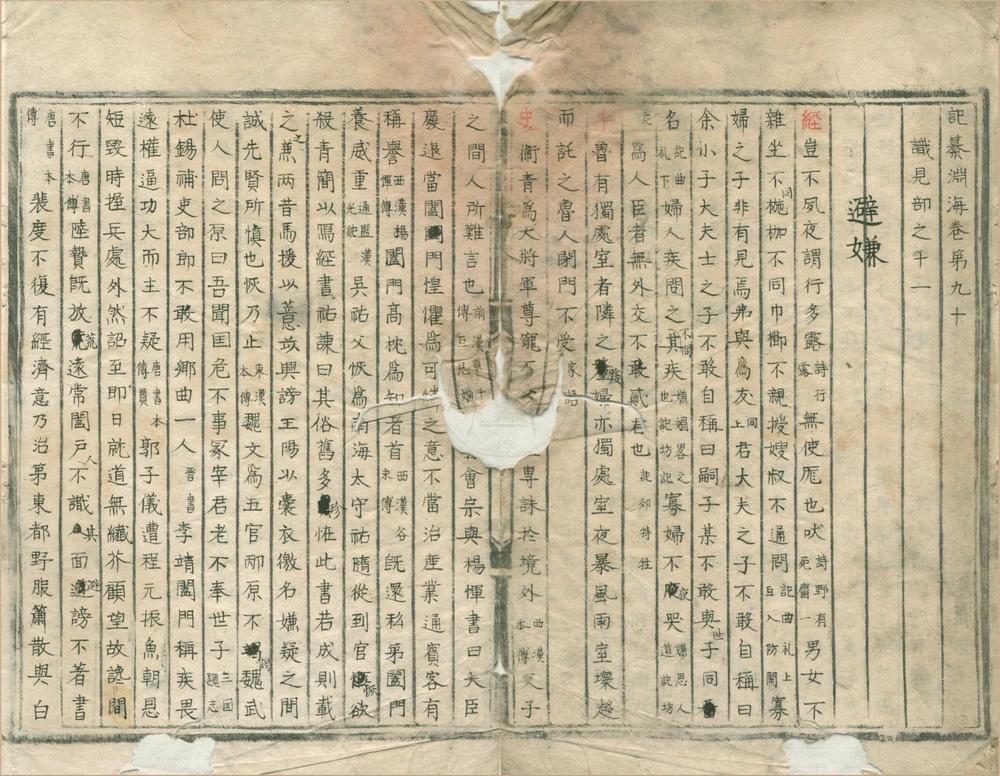 記纂淵海卷第九十
識見部之十一
避嫌
經豈不夙夜謂行多露詩行露無使尨也吠詩野有死麕一男女不
雜坐不同椸枷不同巾櫛不親授嫂叔不通問記曲礼上曰入防閑寡
婦之子非有見焉弗與爲友同上君大夫之子不敢自稱曰
余小子大夫士之子不敢自稱曰嗣子某不敢與世子同
名記曲礼下婦人疾問之不問其疾嫌媚畧之也記坊記寡婦不夜哭嫌思人道記坊
記爲人臣者無外交不敢貳君也記郊特牲
子魯有獨處室者隣之嫠婦亦獨處室夜暴風雨室壞趍
而託之魯人閉門不受家語
史衛青爲大將軍尊寵專誅於境外西漢本傳父子
之間人所難言也前漢傳會宗與楊惲書曰大臣
廢退當闔門惶懼爲可憐之意不當治産業通賓客有
稱譽西漢楊惲傳闔門高枕爲知者首西漢谷永傳旣還私第闔門
養威重通鑑漢光紀吳祐父恢爲南海太守祐隨從到官恢欲
殺青簡以冩經書祐諫曰其俗舊多珍怪此書若成則載
之之兼两昔馬援以薏苡興謗王陽以囊衣徼名嫌疑之間
誠先賢所慎也恢乃止東漢本傳魏文爲五官郎原不謁魏武
使人問之原曰吾聞国危不事冢宰君老不奉世子三国魏志
杜錫補吏部郎不敢用鄉曲一人晋書李靖闔門稱疾畏
遠權逼功大而主不疑唐書本傳賛郭子儀遭程元振魚朝恩
短毀時握兵處外然詔至即日就道無纎芥顧望故讒間
不行唐書本傳陸贄旣放荒遠常闔戸人不識其面避謗不著書
唐書本傳裴度不復有經濟意乃治第東都野服簫散與白